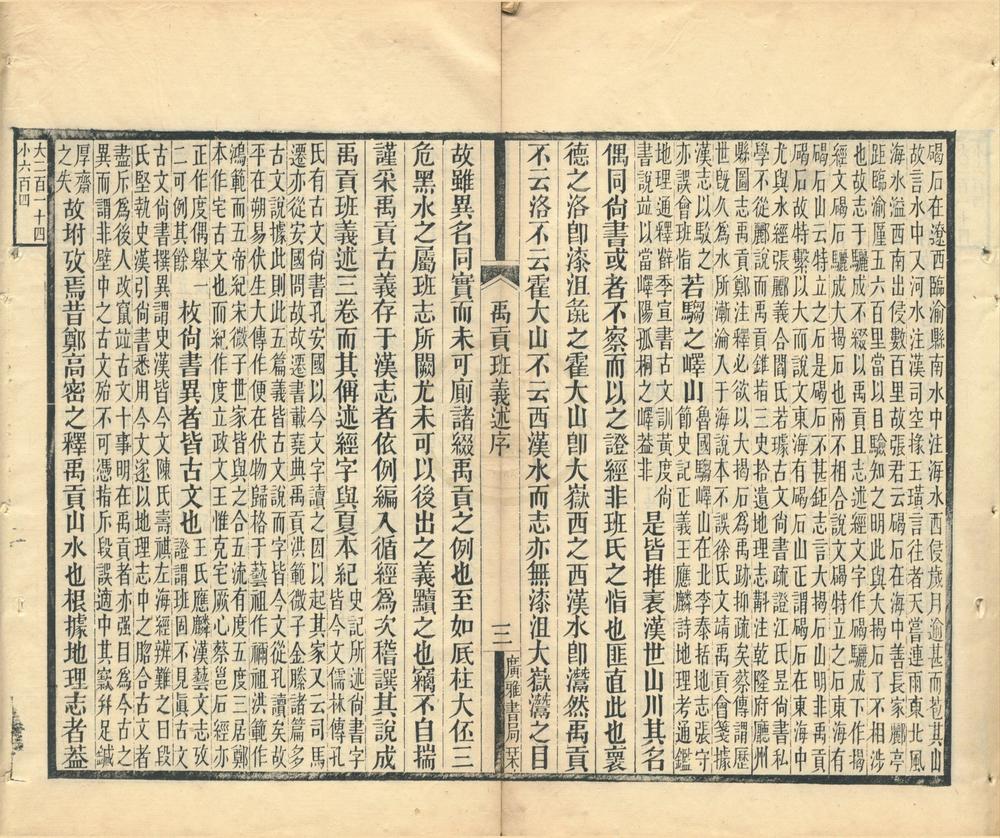 碣石在遼西臨渝縣南水中注海水西侵歲月逾甚而苞其山
故言水中又河水注漢司空掾王璜言往者天嘗連雨東北風
海水溢西南出侵數百里故張君云碣石在海中善長家酈亭
距臨渝厪五六百里當以目驗知之明此與大揭石了不相涉
也故志于驪成不綴以禹貢且志述經文字作碣驪成下作揭
經文碣石驪成大揭石也兩不相合說文碣特立之石東海有
碣石山云特立之石是碣石不甚鉅志言大揭石山明非禹貢
碣石故特繫以大而說文東海有碣石山正謂碣石在東海中
尤與水經張酈義合閻氏若璩古文尙書疏證江氏昱尙書私
學不從酈說而禹貢錐指三史拾遺地理志斠注乾隆府廳州
縣圖志禹貢鄭注釋必欲以大揭石爲禹跡抑疏矣蔡傳謂歷
世旣久爲水所漸淪入于海說本不誤徐氏文靖禹貢會箋據
漢志以駁之
亦誤會班恉
若騶之嶧山
魯國騶嶧山在北李泰括地志張守
節史記正義王應麟詩地理考通鑑
地理通釋薛季宣書古文訓黃度尙
書說竝以當嶧陽孤桐之嶧葢非
是皆推表漢世山川其名
偶同尙書或者不察而以之證經非班氏之恉也匪直此也襄
德之洛卽漆沮彘之霍大山卽大嶽西之西漢水卽灊然禹貢
不云洛不云霍大山不云西漢水而志亦無漆沮大嶽灊之目
禹貢班義述序
三
廣雅書局栞
故雖異名同實而未可廁諸綴禹貢之例也至如厎柱大伾三
危黑水之屬班志所闕尤未可以後出之義黷之也竊不自揣
謹采禹貢古義存于漢志者依例編入循經爲次稽譔其說成
禹貢班義述三卷而其偁述經字與夏本紀
史記所述尙書字
皆今文儒林傳孔
氏有古文尙書孔安國以今文字讀之因以起其家又云司馬
遷亦從安國問故故遷書載堯典禹貢洪範微子金縢諸篇多
古文說據此則此五篇義皆古文說而字皆今文從孔讀矣故
平在朔易伏生大傳作便在伏物歸格于藝祖作禰祖洪範作
鴻範而五帝紀宋微子世家皆與之合五流有度五度三居鄭
本作宅宅古文也而紀作度立政文王惟克宅厥心蔡邕石經亦
正作度偶舉一
二可例其餘
枚尙書異者皆古文也
王氏應麟漢藝文志攷
證謂班固不見眞古文
古文尙書撰異謂史漢皆今文陳氏壽祺左海經辨難之曰段
氏堅執史漢引尙書悉用今文遂以地理志中之䐇合古文者
盡斥爲後人改竄竝古文十事明在禹貢者亦强目爲今古之
異而謂非壁中之古文殆不可憑指斥段誤適中其窾舛足鍼
厚齋
之失
故坿攷焉昔鄭高密之釋禹貢山水也根據地理志者葢
大二百一十四
小六百四